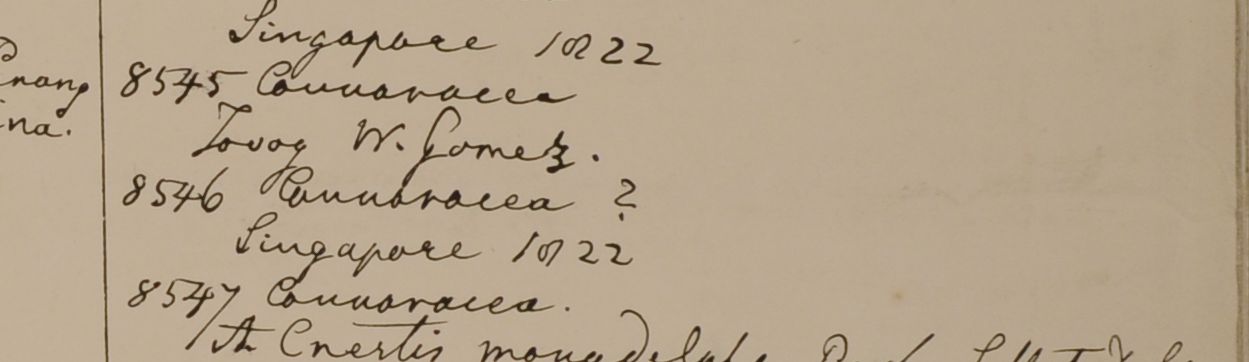 Singapore 1822
8545 Connaracea
Tavoy W. Gomez.
8546 Connaracea ?
Singapore 1822
8547 Connaracea.
An Cnestis monadelpha Roxb.
nang
na.